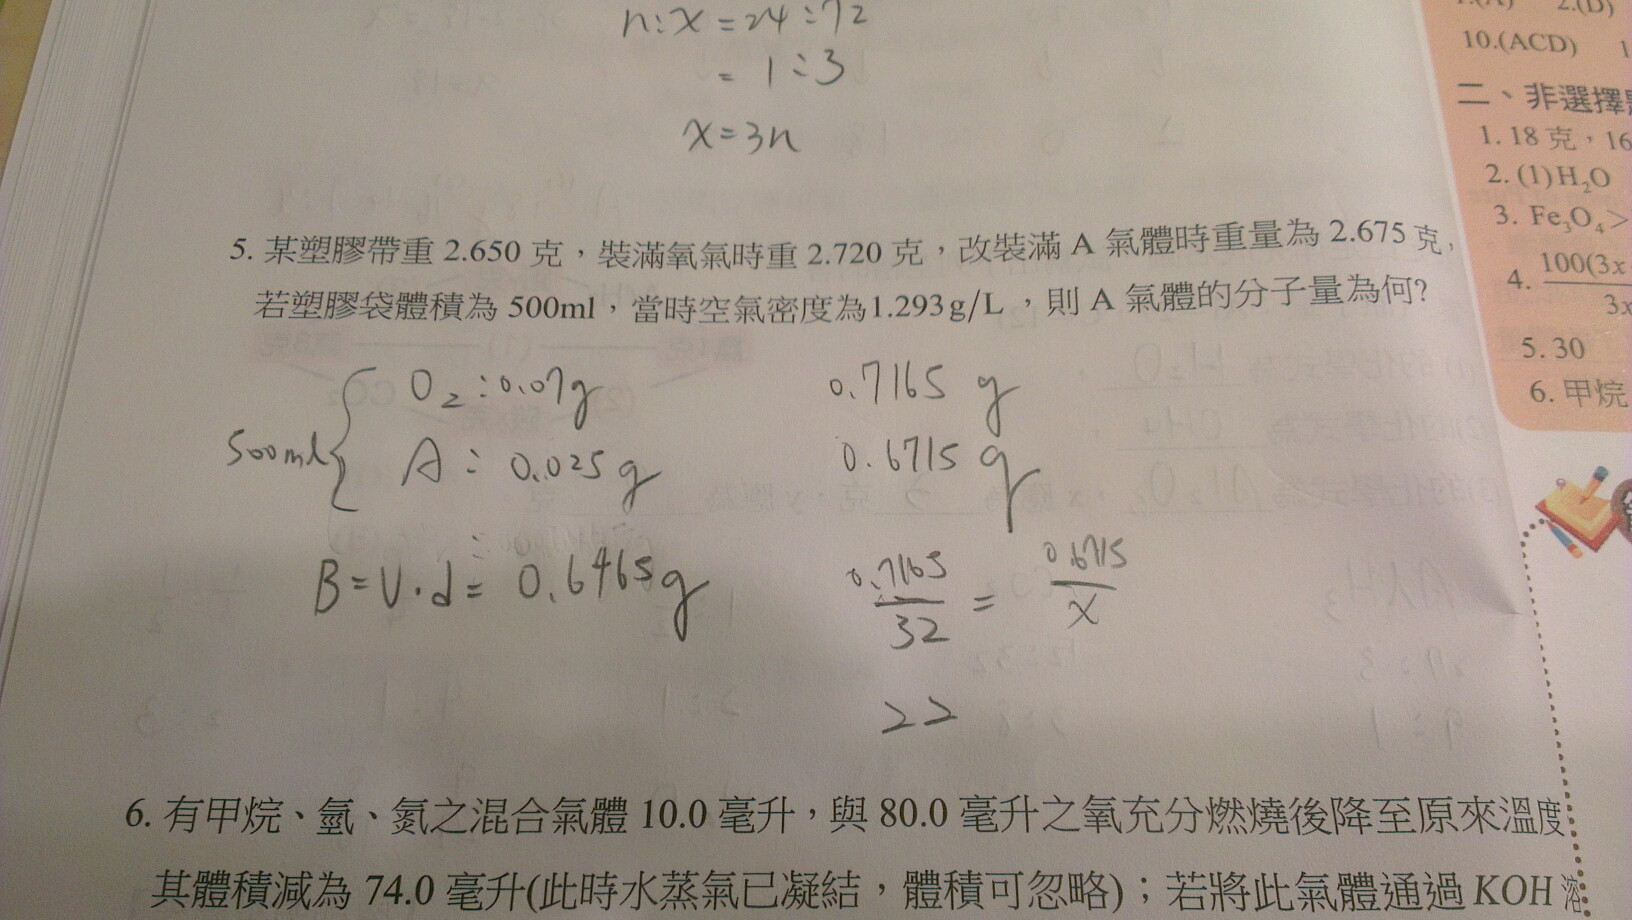 n:x=24:72
=1:3
x=3n
1.(A) 2.(D)
10.(ACD) 1
二、非選擇
1. 18 克,16
2. (1)H₂O
3. Fe₃O₄>
4. 100(3x
3x
5. 30
6. 甲烷
5. 某塑膠帶重 2.650 克,裝滿氧氣時重 2.720 克,改裝滿 A 氣體時重量為 2.675 克,
若塑膠袋體積為 500ml,當時空氣密度為1.293g/L,則 A 氣體的分子量為何?
500ml
O₂:0.07g
A:0.025g
B=V·d=0.6465g
0.7165 g
0.6715 g
0.7165/32 = 0.6715/x
22
6. 有甲烷、氫、氮之混合氣體 10.0 毫升,與 80.0 毫升之氧充分燃燒後降至原來溫度
其體積減為 74.0 毫升(此時水蒸氣已凝結,體積可忽略);若將此氣體通過 KOH 溶